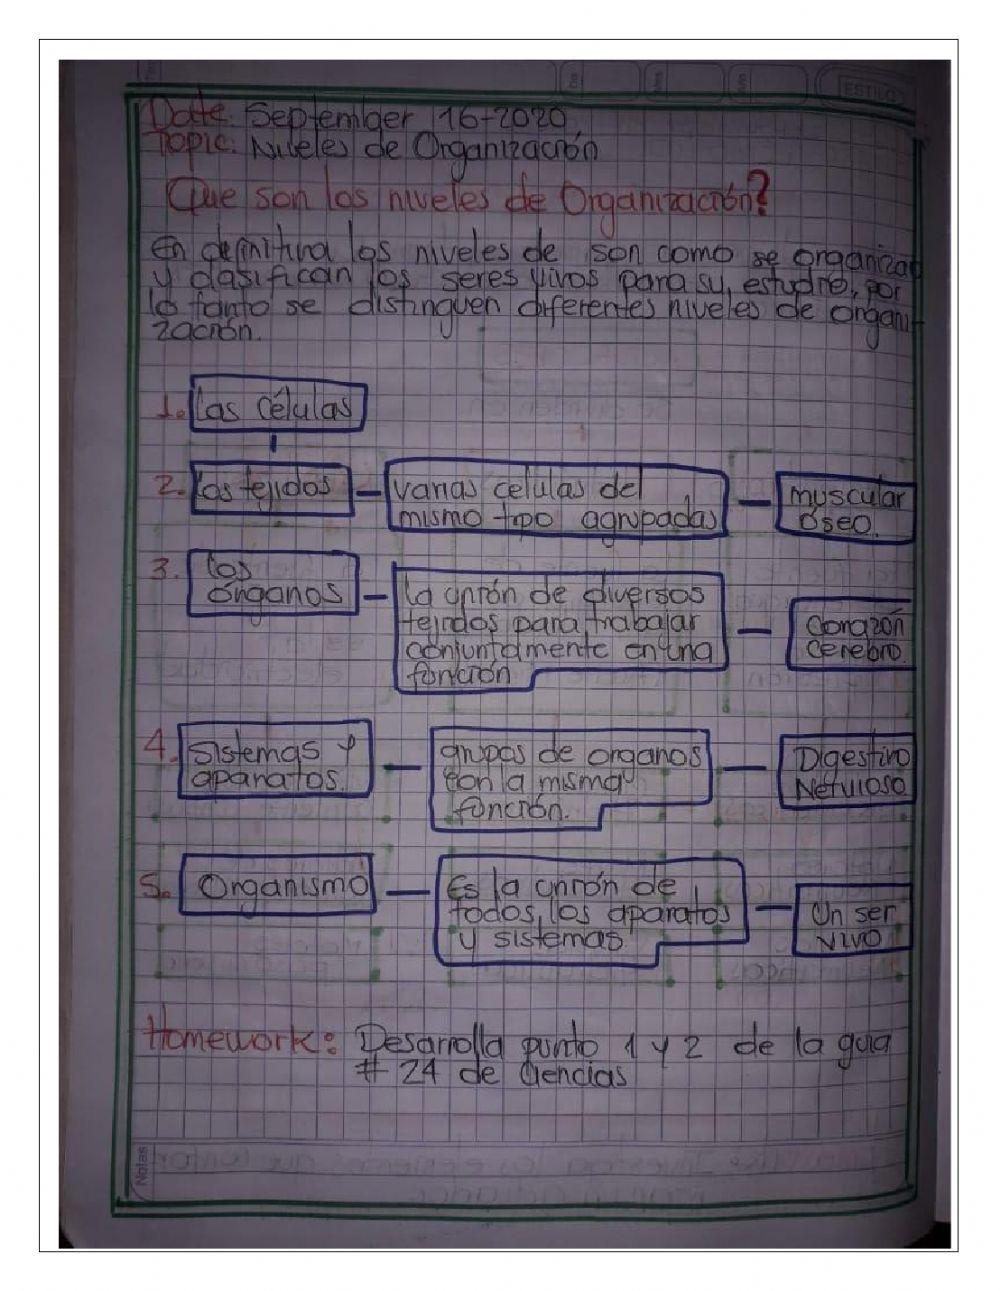 ESTILO
Date: September 16-2020
Topic: Niveles de Organización
Que son los niveles de Organización?
En definitiva los niveles de son como se organizan
y clasifican los seres vivos para su estudio, por
lo tanto se distinguen diferentes niveles de organi-
zación.
1. Las células
2. Los tejidos - varias celulas del - muscular
mismo tipo agrupadas óseo.
3. Los órganos - La unión de diversos
tejidos para trabajar - Corazón
conjuntamente en una cerebro.
función
4. Sistemas y - grupos de organos - Digestivo
aparatos. con la misma Nervioso
función.
5. Organismo - Es la unión de
todos los aparatos - Un ser
y sistemas. vivo
Homework: Desarrolla punto 1 y 2 de la guia
# 24 de Ciencias
Notas